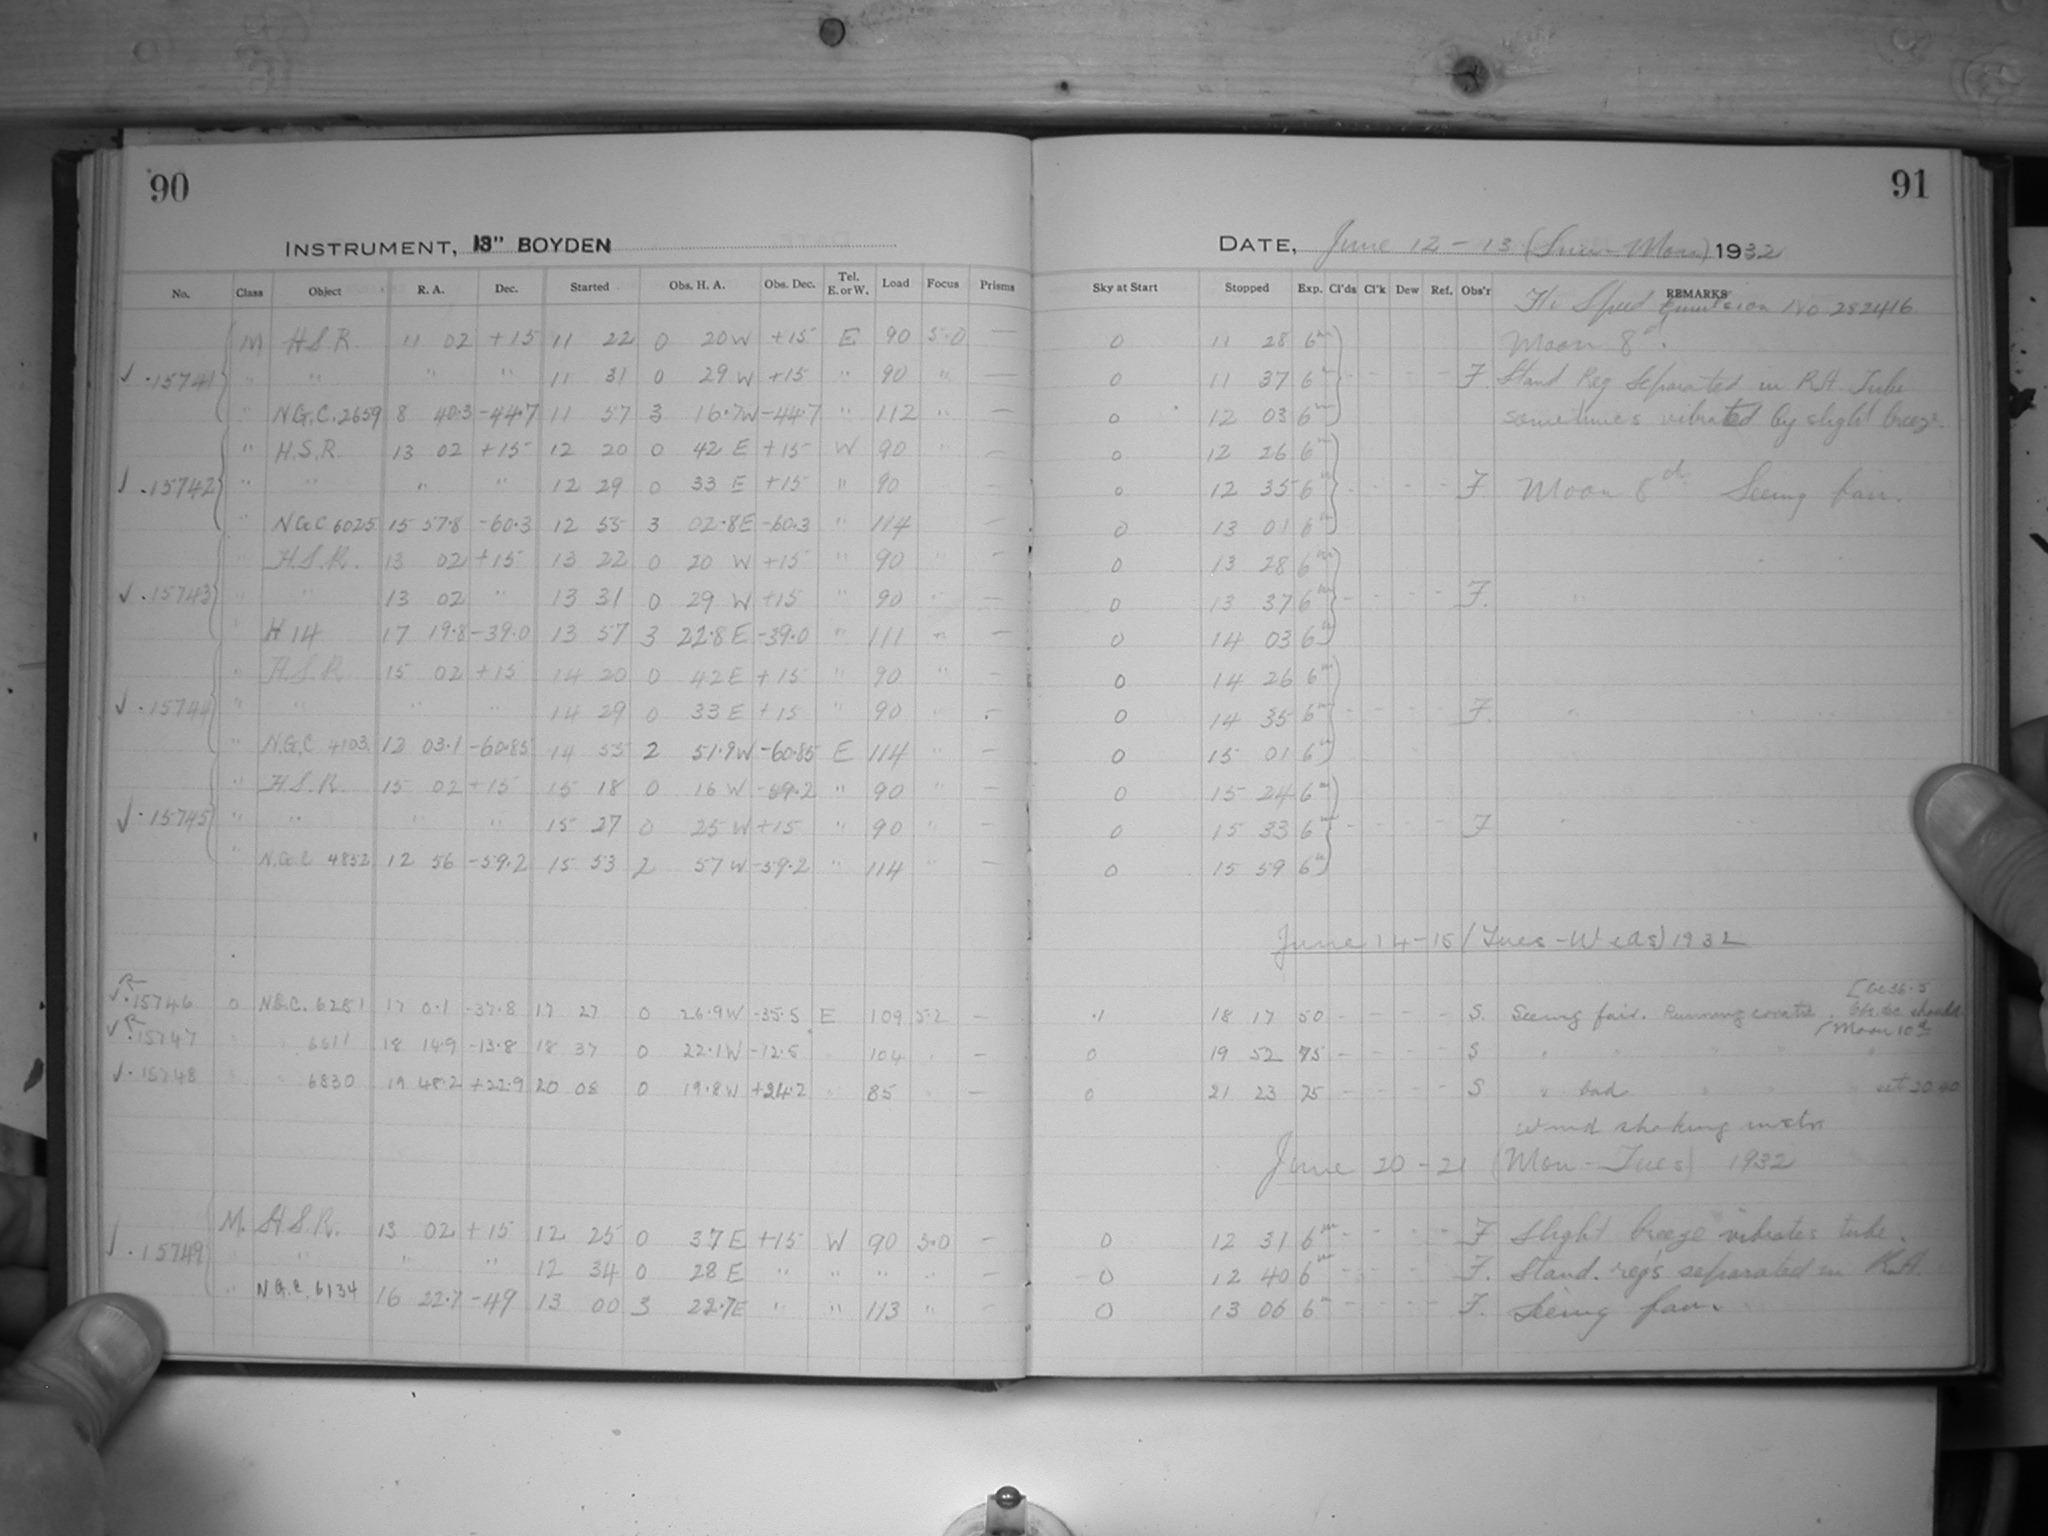 90
INSTRUMENT, 13" BOYDEN
No. Class Object R. A. Dec. Started Obs. H. A. Obs. Dec. Tel. E. or W. Load Focus Prisms
M H.S.R. 11 02 +15 11 22 0 20 W +15 E 90 5.0 —
✓ .15741 " " " " 11 31 0 29 W +15 " 90 " —
" N.G.C. 2659 8 40.3 -44.7 11 57 3 16.7 W -44.7 " 112 " —
" H.S.R. 13 02 +15 12 20 0 42 E +15 W 90 " —
✓ .15742 " " " " 12 29 0 33 E +15 " 90 —
" N.G.C 6025 15 57.8 -60.3 12 55 3 02.8 E -60.3 " 114 —
" H.S.R. 13 02 +15 13 22 0 20 W +15 " 90 " —
✓ .15743 " " 13 02 " 13 31 0 29 W +15 " 90 " —
" H 14 17 19.8 -39.0 13 57 3 22.8 E -39.0 " 111 " —
" H.S.R 15 02 +15 14 20 0 42 E +15 " 90 " —
✓ .15744 " " " " 14 29 0 33 E +15 " 90 " —
" N.G.C 4103 12 03.1 -60.85 14 55 2 51.9 W -60.85 E 114 " —
" H.S.R. 15 02 +15 15 18 0 16 W -59.2 " 90 " —
✓ .15745 " " " " 15 27 0 25 W +15 " 90 " —
" N.G.C 4852 12 56 -59.2 15 53 2 57 W -59.2 " 114 " —
✓R .15746 O N.G.C. 6281 17 0.1 -37.8 17 27 0 26.9 W -35.5 E 109 5.2 —
✓R .15747 " " 6611 18 14.9 -13.8 18 37 0 22.1 W -12.5 " 104 " —
✓ .15748 " " 6830 19 48.2 +22.9 20 08 0 19.8 W +24.2 " 85 " —
M. H.S.R. 13 02 +15 12 25 0 37 E +15 W 90 5.0 —
✓ .15749 " " " " 12 34 0 28 E " " " " —
" N.G.C. 6134 16 22.7 -49 13 00 3 22.7 E " " 113 " —
91
DATE, June 12 - 13 (Sun - Mon) 1932
Sky at Start Stopped Exp. Cl'ds Cl'k Dew Ref. Obs'r REMARKS
Hi Speed Emulsion No 282416
0 11 28 6m Moon 8d.
0 11 37 6m - - - - F. Stand Reg Separated in R.A. Tube
0 12 03 6m sometimes vibrated by slight breeze.
0 12 26 6m
0 12 35 6m - - - - F. Moon 8d Seeing fair.
0 13 01 6m
0 13 28 6m
0 13 37 6m - - - - F. "
0 14 03 6m
0 14 26 6m
0 14 35 6m - - - - F. "
0 15 01 6m
0 15 24 6m
0 15 33 6m - - - - F "
0 15 59 6m
June 14-15 (Tues - Weds) 1932
.1 18 17 50 - - - - S. Seeing fair. Running Obs. dec should
[be 36.5
Moon 10d
0 19 52 75 - - - - S " " " " "
0 21 23 75 - - - - S " bad " " " set 20.40
Wind shaking instr
June 20 - 21 (Mon - Tues) 1932
0 12 31 6m - - - - F Slight breeze vibrates tube.
0 12 40 6m - - - - F. Stand. reg's separated in R.A.
0 13 06 6m - - - - F. Seeing fair.